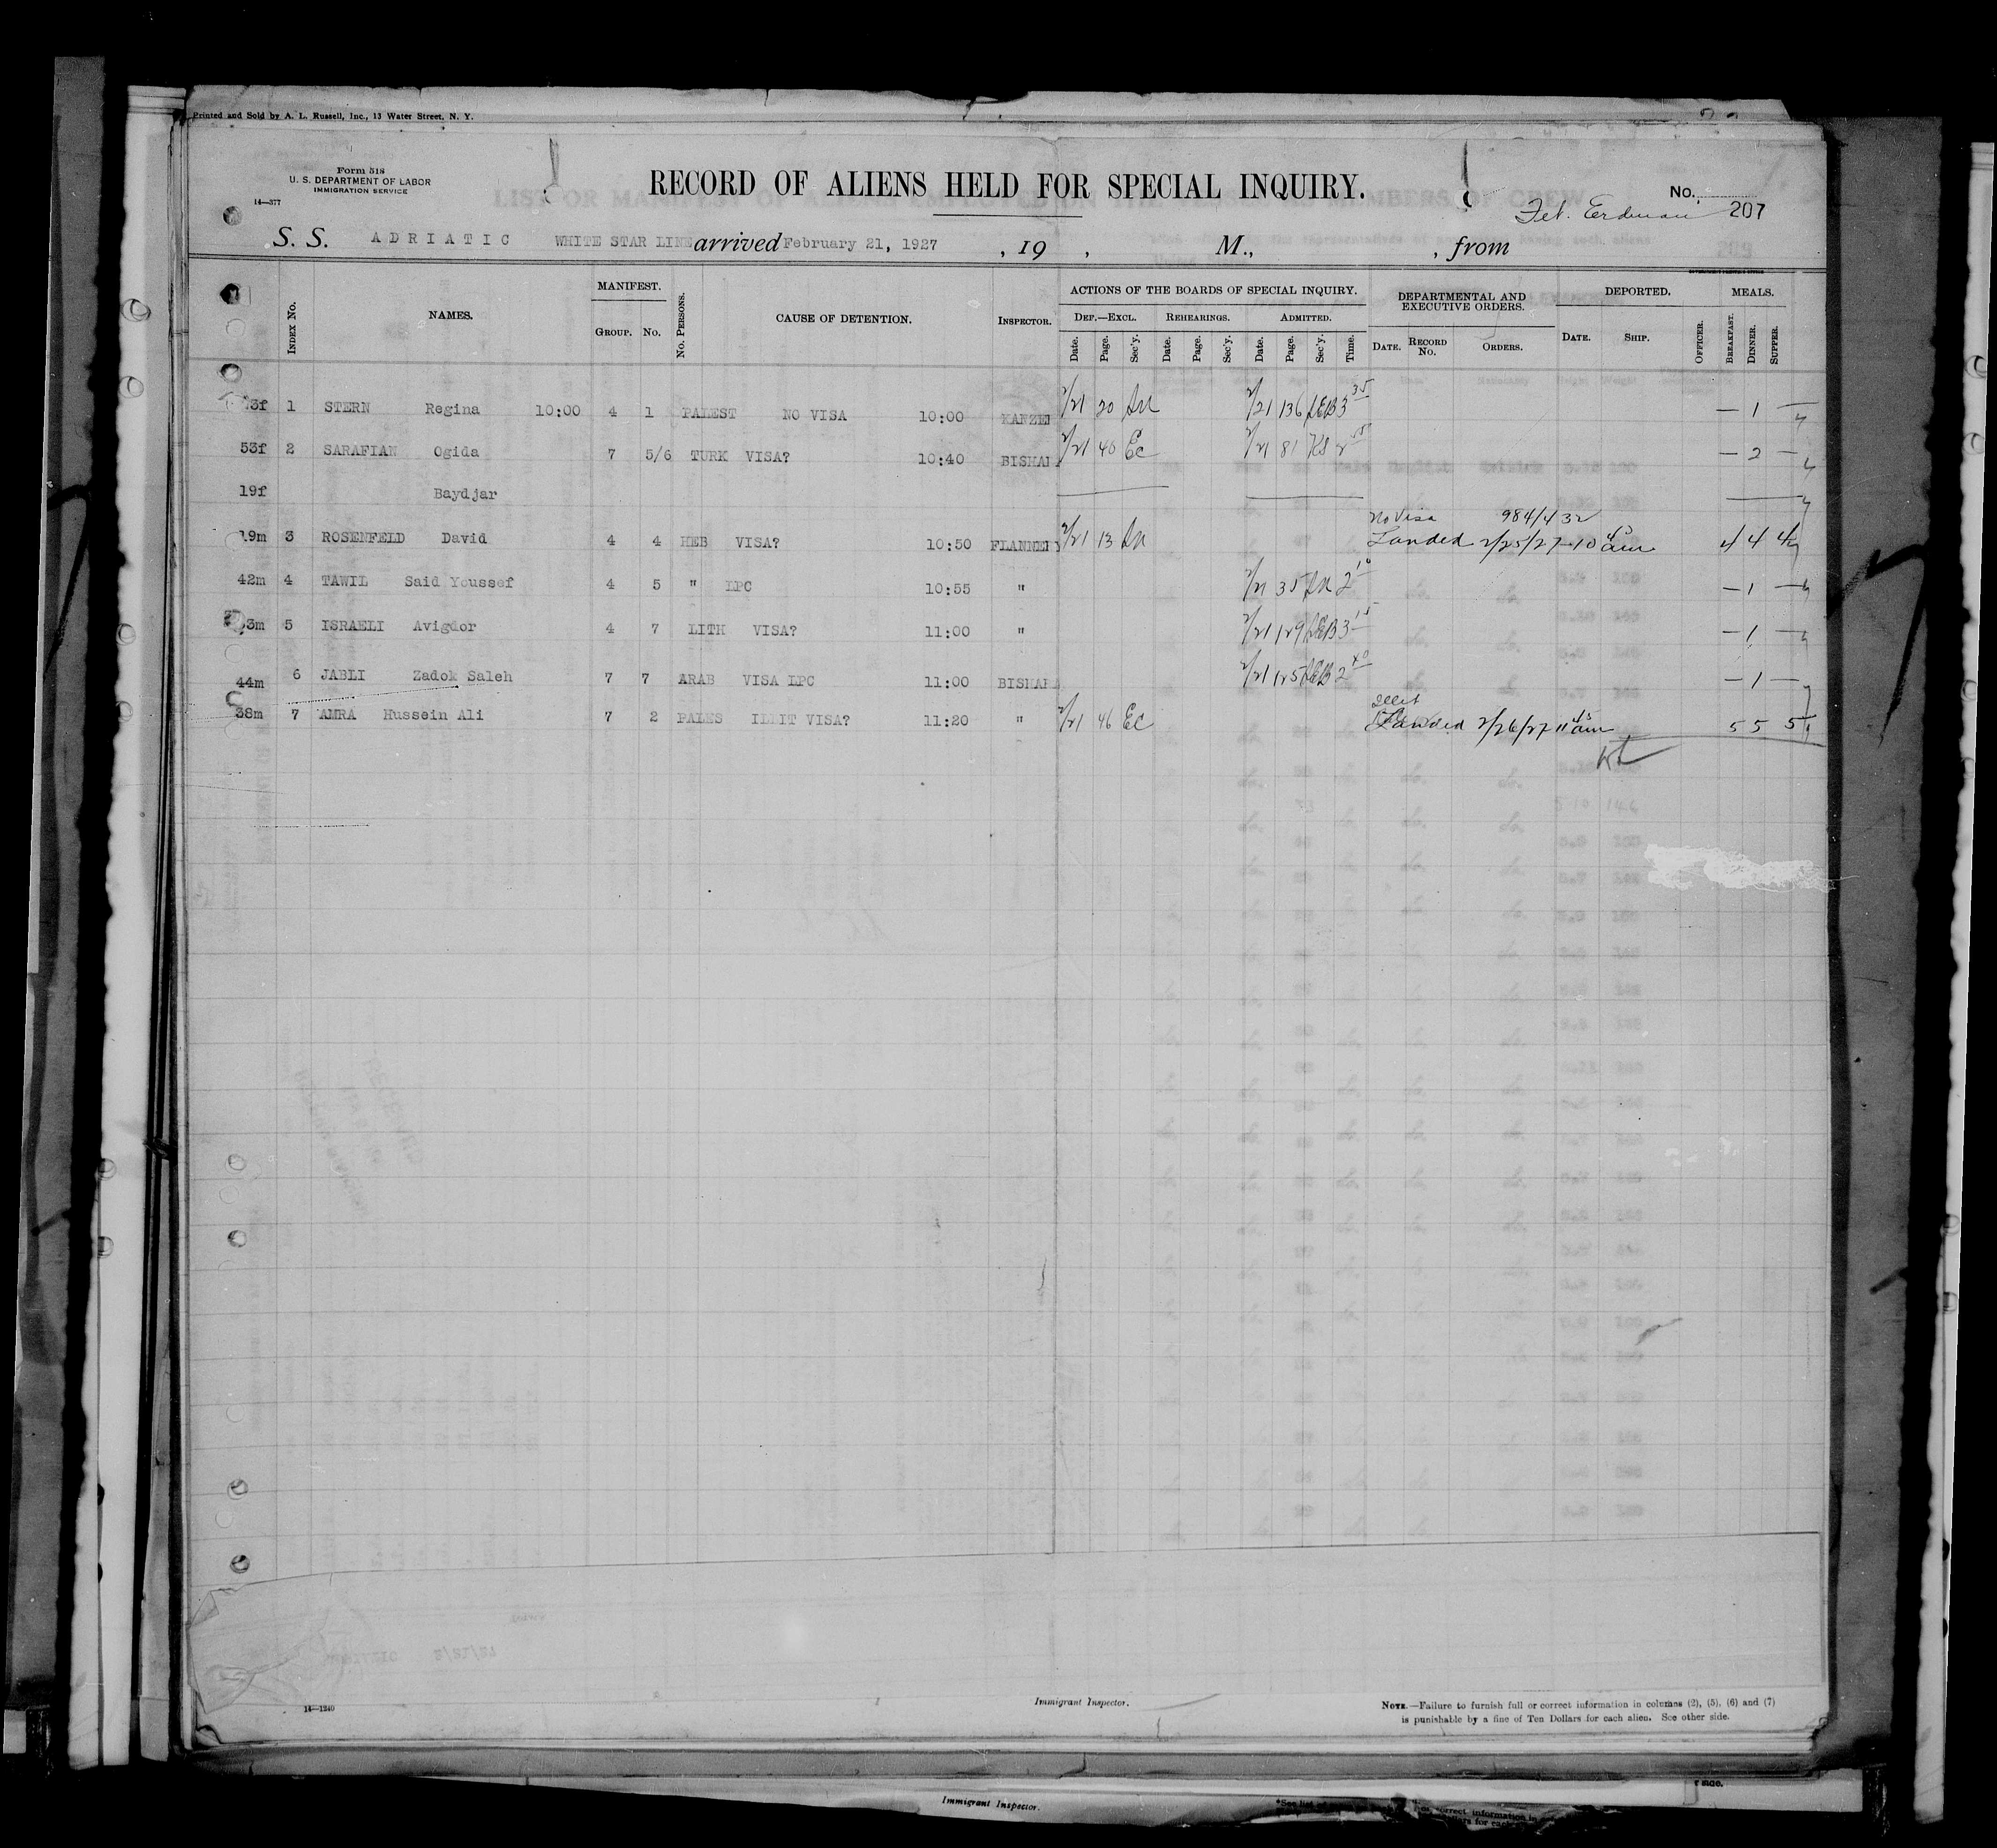 Printed and Sold by A. L. Russell, Inc., 13 Water Street, N. Y.
Form 518
U. S. DEPARTMENT OF LABOR
IMMIGRATION SERVICE
14—377
RECORD OF ALIENS HELD FOR SPECIAL INQUIRY.
No. 207
S. S. ADRIATIC WHITE STAR LINE arrived February 21, 1927 , 19 , M., , from
Index No. NAMES. MANIFEST. GROUP. No. No. PERSONS. CAUSE OF DETENTION. INSPECTOR. ACTIONS OF THE BOARDS OF SPECIAL INQUIRY. DEPARTMENTAL AND EXECUTIVE ORDERS. DEPORTED. MEALS.
DEF.—EXCL. REHEARINGS. ADMITTED.
Date. Page. Sec'y. Date. Page. Sec'y. Date. Page. Sec'y. Time. DATE. RECORD No. ORDERS. DATE. SHIP. OFFICER. BREAKFAST. DINNER. SUPPER.
1 STERN Regina 10:00 4 1 PALEST NO VISA 10:00 2/21 20 2/21 136 LEB 3 35 — 1 —
53f 2 SARAFIAN Ogida 7 5/6 TURK VISA? 10:40 2/21 40 Ec 2/21 81 — 2 —
19f Baydjar
No Visa 984/432
19m 3 ROSENFELD David 4 4 HEB VISA? 10:50 2/21 13 Landed 2/25/27 10 am 4 4 4
42m 4 TAWIL Said Youssef 4 5 " LPC 10:55 " 2/21 35 2 10 — 1 —
5 ISRAELI Avigdor 4 7 LITH VISA? 11:00 " 2/21 129 LEB 3 15 — 1 —
44m 6 JABLI Zadok Saleh 7 7 ARAB VISA LPC 11:00 2/21 125 LEB 2 40 — 1 —
38m 7 AMRA Hussein Ali 7 2 PALES ILLIT VISA? 11:20 " 2/21 46 Ec Landed 2/26/27 11 45 am 5 5 5
14—1240
Immigrant Inspector.
NOTE.—Failure to furnish full or correct information in columns (2), (5), (6) and (7)
is punishable by a fine of Ten Dollars for each alien. See other side.
Immigrant Inspector.